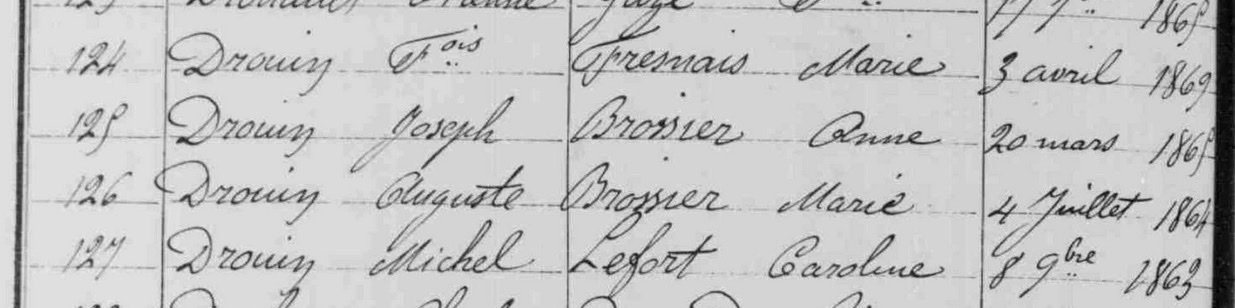 1865
124 Drouin F.ois Fresnais Marie 3 avril 1869
125 Drouin Joseph Brossier Anne 20 mars 1865
126 Drouin Auguste Brossier Marie 4 Juillet 1864
127 Drouin Michel Lefort Caroline 8 9bre 1863